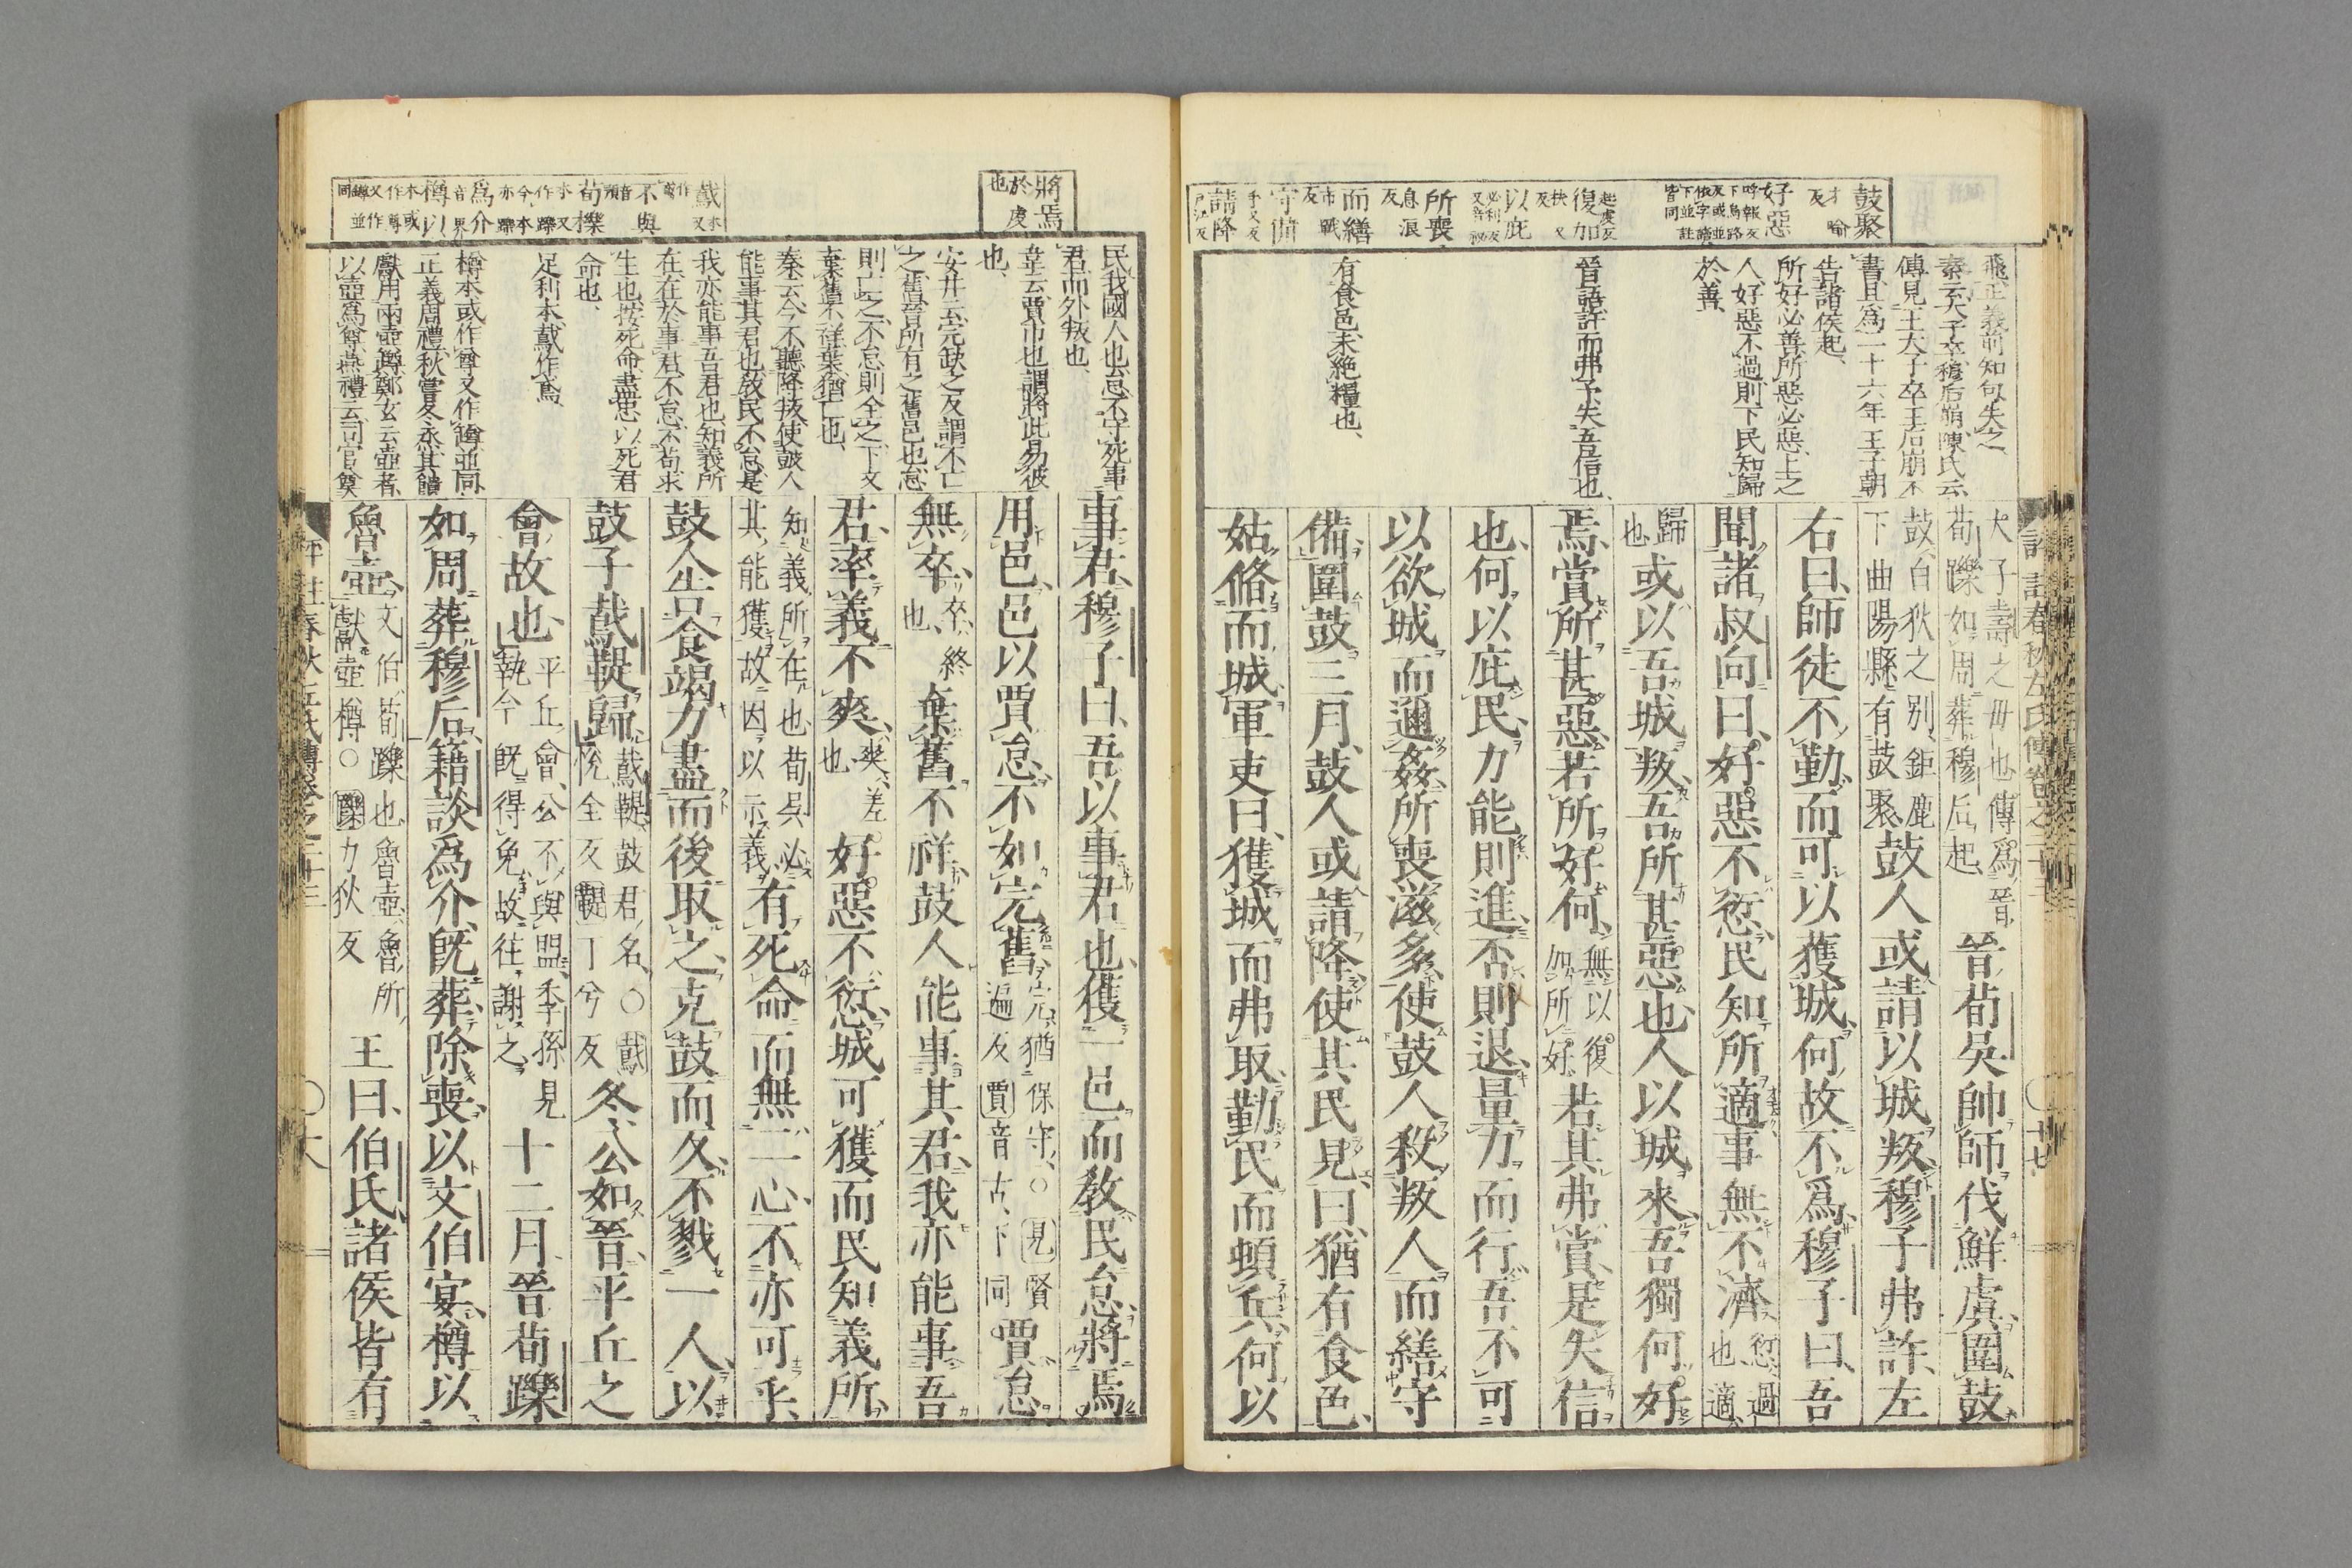 鼓聚
才喻反
好惡
呼報反下烏路反或並依字讀下並註皆同
復加
起虔反
扶又反
以庇
必利反又音祕
所喪
息浪反
而繕
市戰反
守備
手又反
請降
戶江反
飛正義前知句失之
秦云大子卒穆后崩陳氏云
傳見王大子卒王后崩不
書且爲二十六年王子朝
告諸侯起、
所好必善所惡必惡上之
人好惡不過則下民知歸
於善、
晉語許而弗予失吾信也、
有食邑未絶糧也、
大子壽之毋也傳爲晉
荀躒如周葬穆后起、
晉荀吳帥師伐鮮虞圍鼓
鼓白狄之別鉅鹿
下曲陽縣有鼓聚
鼓人或請以城叛穆子弗許左
右曰、師徒不勤而可以獲城何故不爲穆子曰、吾
聞諸叔向曰、好惡不愆民知所適事無不濟
愆、過
也、適、
歸
也、
或以吾城叛吾所甚惡也人以城來吾獨何好
焉賞所甚惡若所好何、
無以復
加所好、
若其弗賞是失信
也、何以庇民力能則進否則退量力而行吾不可
以欲城而邇姦所喪滋多使鼓人殺叛人而繕守
備圍鼓三月、鼓人或請降使其民見曰、猶有食色、
姑脩而城軍吏曰、獲城而弗取勤民而頓兵何以
將焉
於虔也
鼔
本又作鳶
不與
音預
荀櫟
本又作躒今本亦
爲介
音界
樽以
本或作尊又作罇並同
民我國人也怠不守死事
君而外叛也、
韋云賈市也謂將此易彼
也、
安井云完缺之反謂不亡
之舊晉所有之舊邑也怠
則亡之不怠則全之下文
棄舊不祥棄猶亡也、
秦云今不聽降叛使鼓人
能事其君也敎民不怠是
我亦能事吾君也知義所
在在於事君不怠不苟求
生也按死命盡忠以死君
命也、
足利本鳶作鳶
樽本或作尊又作罇並同
正義周禮秋嘗冬烝其饋
獻用兩壺罇鄭玄云壺者
以壺爲尊燕禮云司官奠
事君穆子曰、吾以事君也獲一邑而敎民怠將焉
用邑邑以賈怠不如完舊
完猶保守、○見賢
遍反賈音古下同
賈怠
無卒
卒、終
也、
棄舊不祥鼓人能事其君我亦能事吾
君率義不爽
爽、差
也、
好惡不愆城可獲而民知義所
知義所在也荀吳必
其能獲故因以示義
有死命而無二心不亦可乎
鼓人告食竭力盡而後取之克鼓而久不戮一人以
鼓子鳶鞮歸
鳶鞮鼓君名、○鳶
悅全反鞮丁兮反
冬公如晉平丘之
會故也
平丘會公不與盟季孫見
執今旣得免故往謝之、
十二月晉荀躒
如周葬穆后籍談爲介旣葬除喪以文伯宴樽以
魯壺
文伯荀躒也魯壺魯所
獻壺樽○躒力狄反
王曰、伯氏諸侯皆有